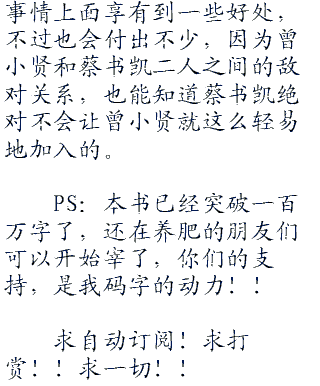 事情上面享有到一些好处，
不过也会付出不少，因为曾
小贤和蔡书凯二人之间的敌
对关系，也能知道蔡书凯绝
对不会让曾小贤就这么轻易
地加入的。
PS：本书已经突破一百
万字了，还在养肥的朋友们
可以开始宰了，你们的支
持，是我码字的动力！！
求自动订阅！求打
赏！！求一切！！